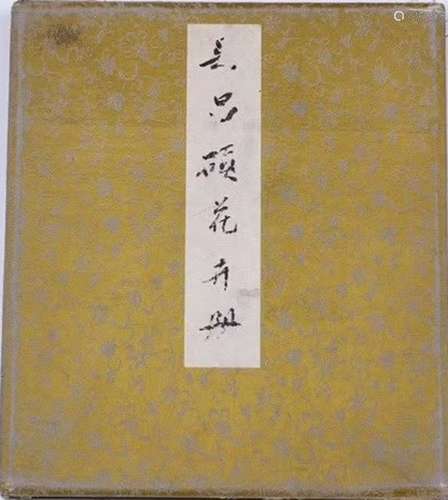 吴昌碩花卉册